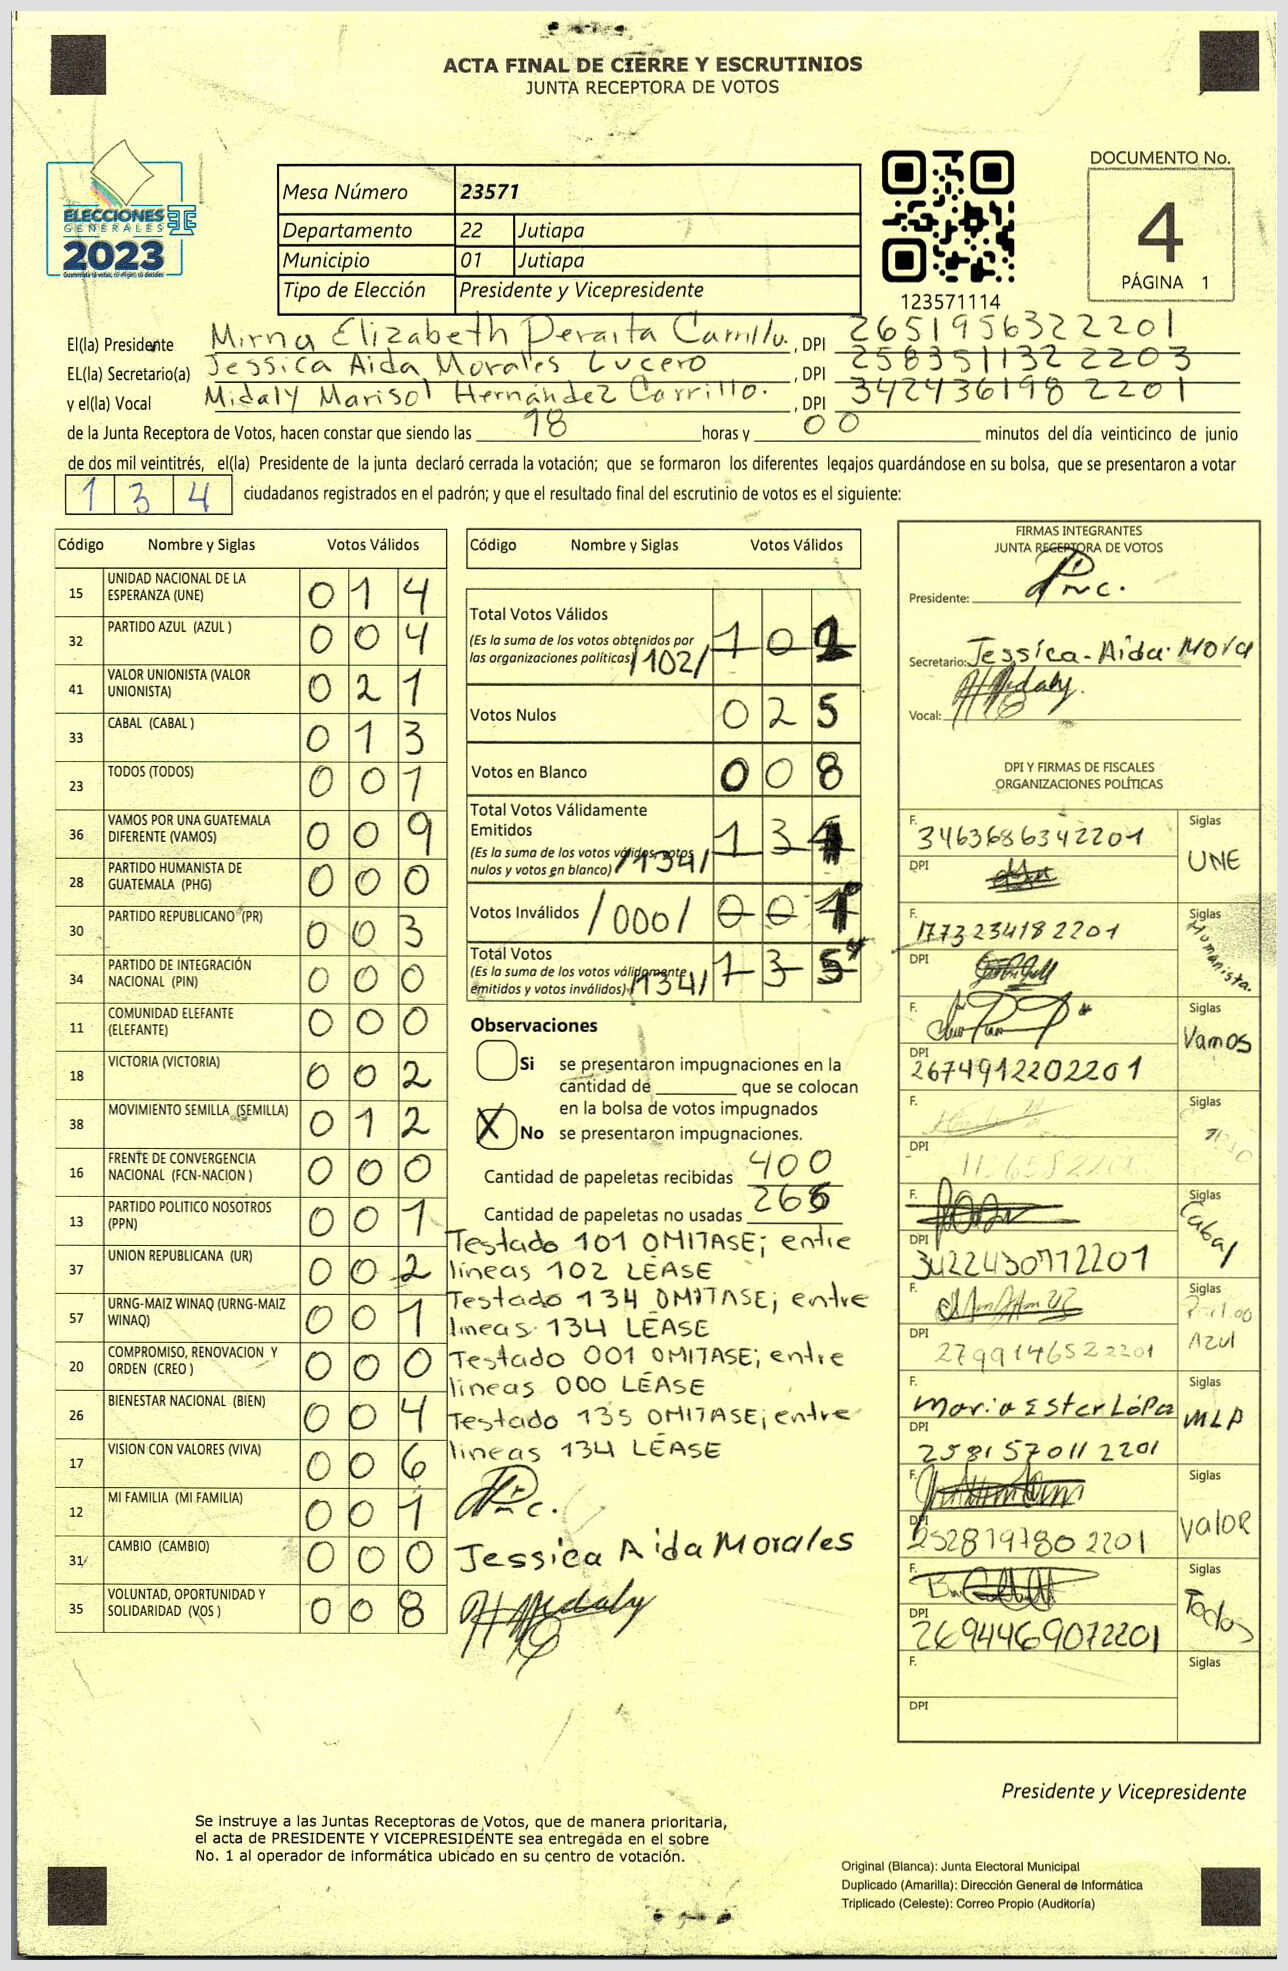 ACTA FINAL DE CIERRE Y ESCRUTINIOS
JUNTA RECEPTORA DE VOTOS
ELECCIONES
GENERALES
2023
Mesa Número 23571
Departamento 22 Jutiapa
Municipio 01 Jutiapa
Tipo de Elección Presidente y Vicepresidente
123571114
DOCUMENTO No.
4
PÁGINA 1
El(la) Presidente Mirna Elizabeth Peraita Carrillo. , DPI 2651956322201
EL(la) Secretario(a) Jessica Aida Morales Lucero , DPI 258351132 2203
y el(la) Vocal Midaly Marisol Hernández Carrillo. , DPI 342436198 2201
de la Junta Receptora de Votos, hacen constar que siendo las 18 horas y 00 minutos del día veinticinco de junio
de dos mil veintitrés, el(la) Presidente de la junta declaró cerrada la votación; que se formaron los diferentes legajos guardándose en su bolsa, que se presentaron a votar
1 3 4 ciudadanos registrados en el padrón; y que el resultado final del escrutinio de votos es el siguiente:
Código Nombre y Siglas Votos Válidos
15 UNIDAD NACIONAL DE LA ESPERANZA (UNE) 0 1 4
32 PARTIDO AZUL (AZUL ) 0 0 4
41 VALOR UNIONISTA (VALOR UNIONISTA) 0 2 1
33 CABAL (CABAL ) 0 1 3
23 TODOS (TODOS) 0 0 1
36 VAMOS POR UNA GUATEMALA DIFERENTE (VAMOS) 0 0 9
28 PARTIDO HUMANISTA DE GUATEMALA (PHG) 0 0 0
30 PARTIDO REPUBLICANO (PR) 0 0 3
34 PARTIDO DE INTEGRACIÓN NACIONAL (PIN) 0 0 0
11 COMUNIDAD ELEFANTE (ELEFANTE) 0 0 0
18 VICTORIA (VICTORIA) 0 0 2
38 MOVIMIENTO SEMILLA (SEMILLA) 0 1 2
16 FRENTE DE CONVERGENCIA NACIONAL (FCN-NACION ) 0 0 0
13 PARTIDO POLITICO NOSOTROS (PPN) 0 0 1
37 UNION REPUBLICANA (UR) 0 0 2
57 URNG-MAIZ WINAQ (URNG-MAIZ WINAQ) 0 0 1
20 COMPROMISO, RENOVACION Y ORDEN (CREO ) 0 0 0
26 BIENESTAR NACIONAL (BIEN) 0 0 4
17 VISION CON VALORES (VIVA) 0 0 6
12 MI FAMILIA (MI FAMILIA) 0 0 1
31 CAMBIO (CAMBIO) 0 0 0
35 VOLUNTAD, OPORTUNIDAD Y SOLIDARIDAD (VOS ) 0 0 8
Código Nombre y Siglas Votos Válidos
Total Votos Válidos
(Es la suma de los votos obtenidos por
las organizaciones políticas) /102/ 1 0
Votos Nulos 0 2 5
Votos en Blanco 0 0 8
Total Votos Válidamente
Emitidos
(Es la suma de los votos válidos, votos
nulos y votos en blanco) /134/ 1 3
Votos Inválidos /000/ 0 0
Total Votos
(Es la suma de los votos válidamente
emitidos y votos inválidos) /134/ 1 3 5
Observaciones
Si se presentaron impugnaciones en la
cantidad de que se colocan
en la bolsa de votos impugnados
X No se presentaron impugnaciones.
Cantidad de papeletas recibidas 400
Cantidad de papeletas no usadas 266
Testado 101 OMITASE; entre
líneas 102 LÉASE
Testado 134 OMITASE; entre
líneas 134 LÉASE
Testado 001 OMITASE; entre
líneas 000 LÉASE
Testado 135 OMITASE; entre
líneas 134 LÉASE
Jessica Aida Morales
Midaly
FIRMAS INTEGRANTES
JUNTA RECEPTORA DE VOTOS
Presidente:
Secretario: Jessica-Aida-Mora
Vocal: Midaly
DPI Y FIRMAS DE FISCALES
ORGANIZACIONES POLÍTICAS
F. 3463686342201 Siglas
DPI UNE
F. 1773234182201 Siglas
DPI Humanista.
F. Siglas
DPI 2674912202201 Vamos
F. Siglas
DPI
F. Siglas
DPI 3422430772201 Cabal
F. Siglas
DPI 2799146522201 Azul
F. Maria Ester López Siglas
DPI 2581570112201 MLP
F. Siglas
DPI 2528797802201 Valor
F. Siglas
DPI 2694469072201 Todos
F. Siglas
DPI
Presidente y Vicepresidente
Se instruye a las Juntas Receptoras de Votos, que de manera prioritaria,
el acta de PRESIDENTE Y VICEPRESIDENTE sea entregada en el sobre
No. 1 al operador de informática ubicado en su centro de votación.
Original (Blanca): Junta Electoral Municipal
Duplicado (Amarilla): Dirección General de Informática
Triplicado (Celeste): Correo Propio (Auditoría)